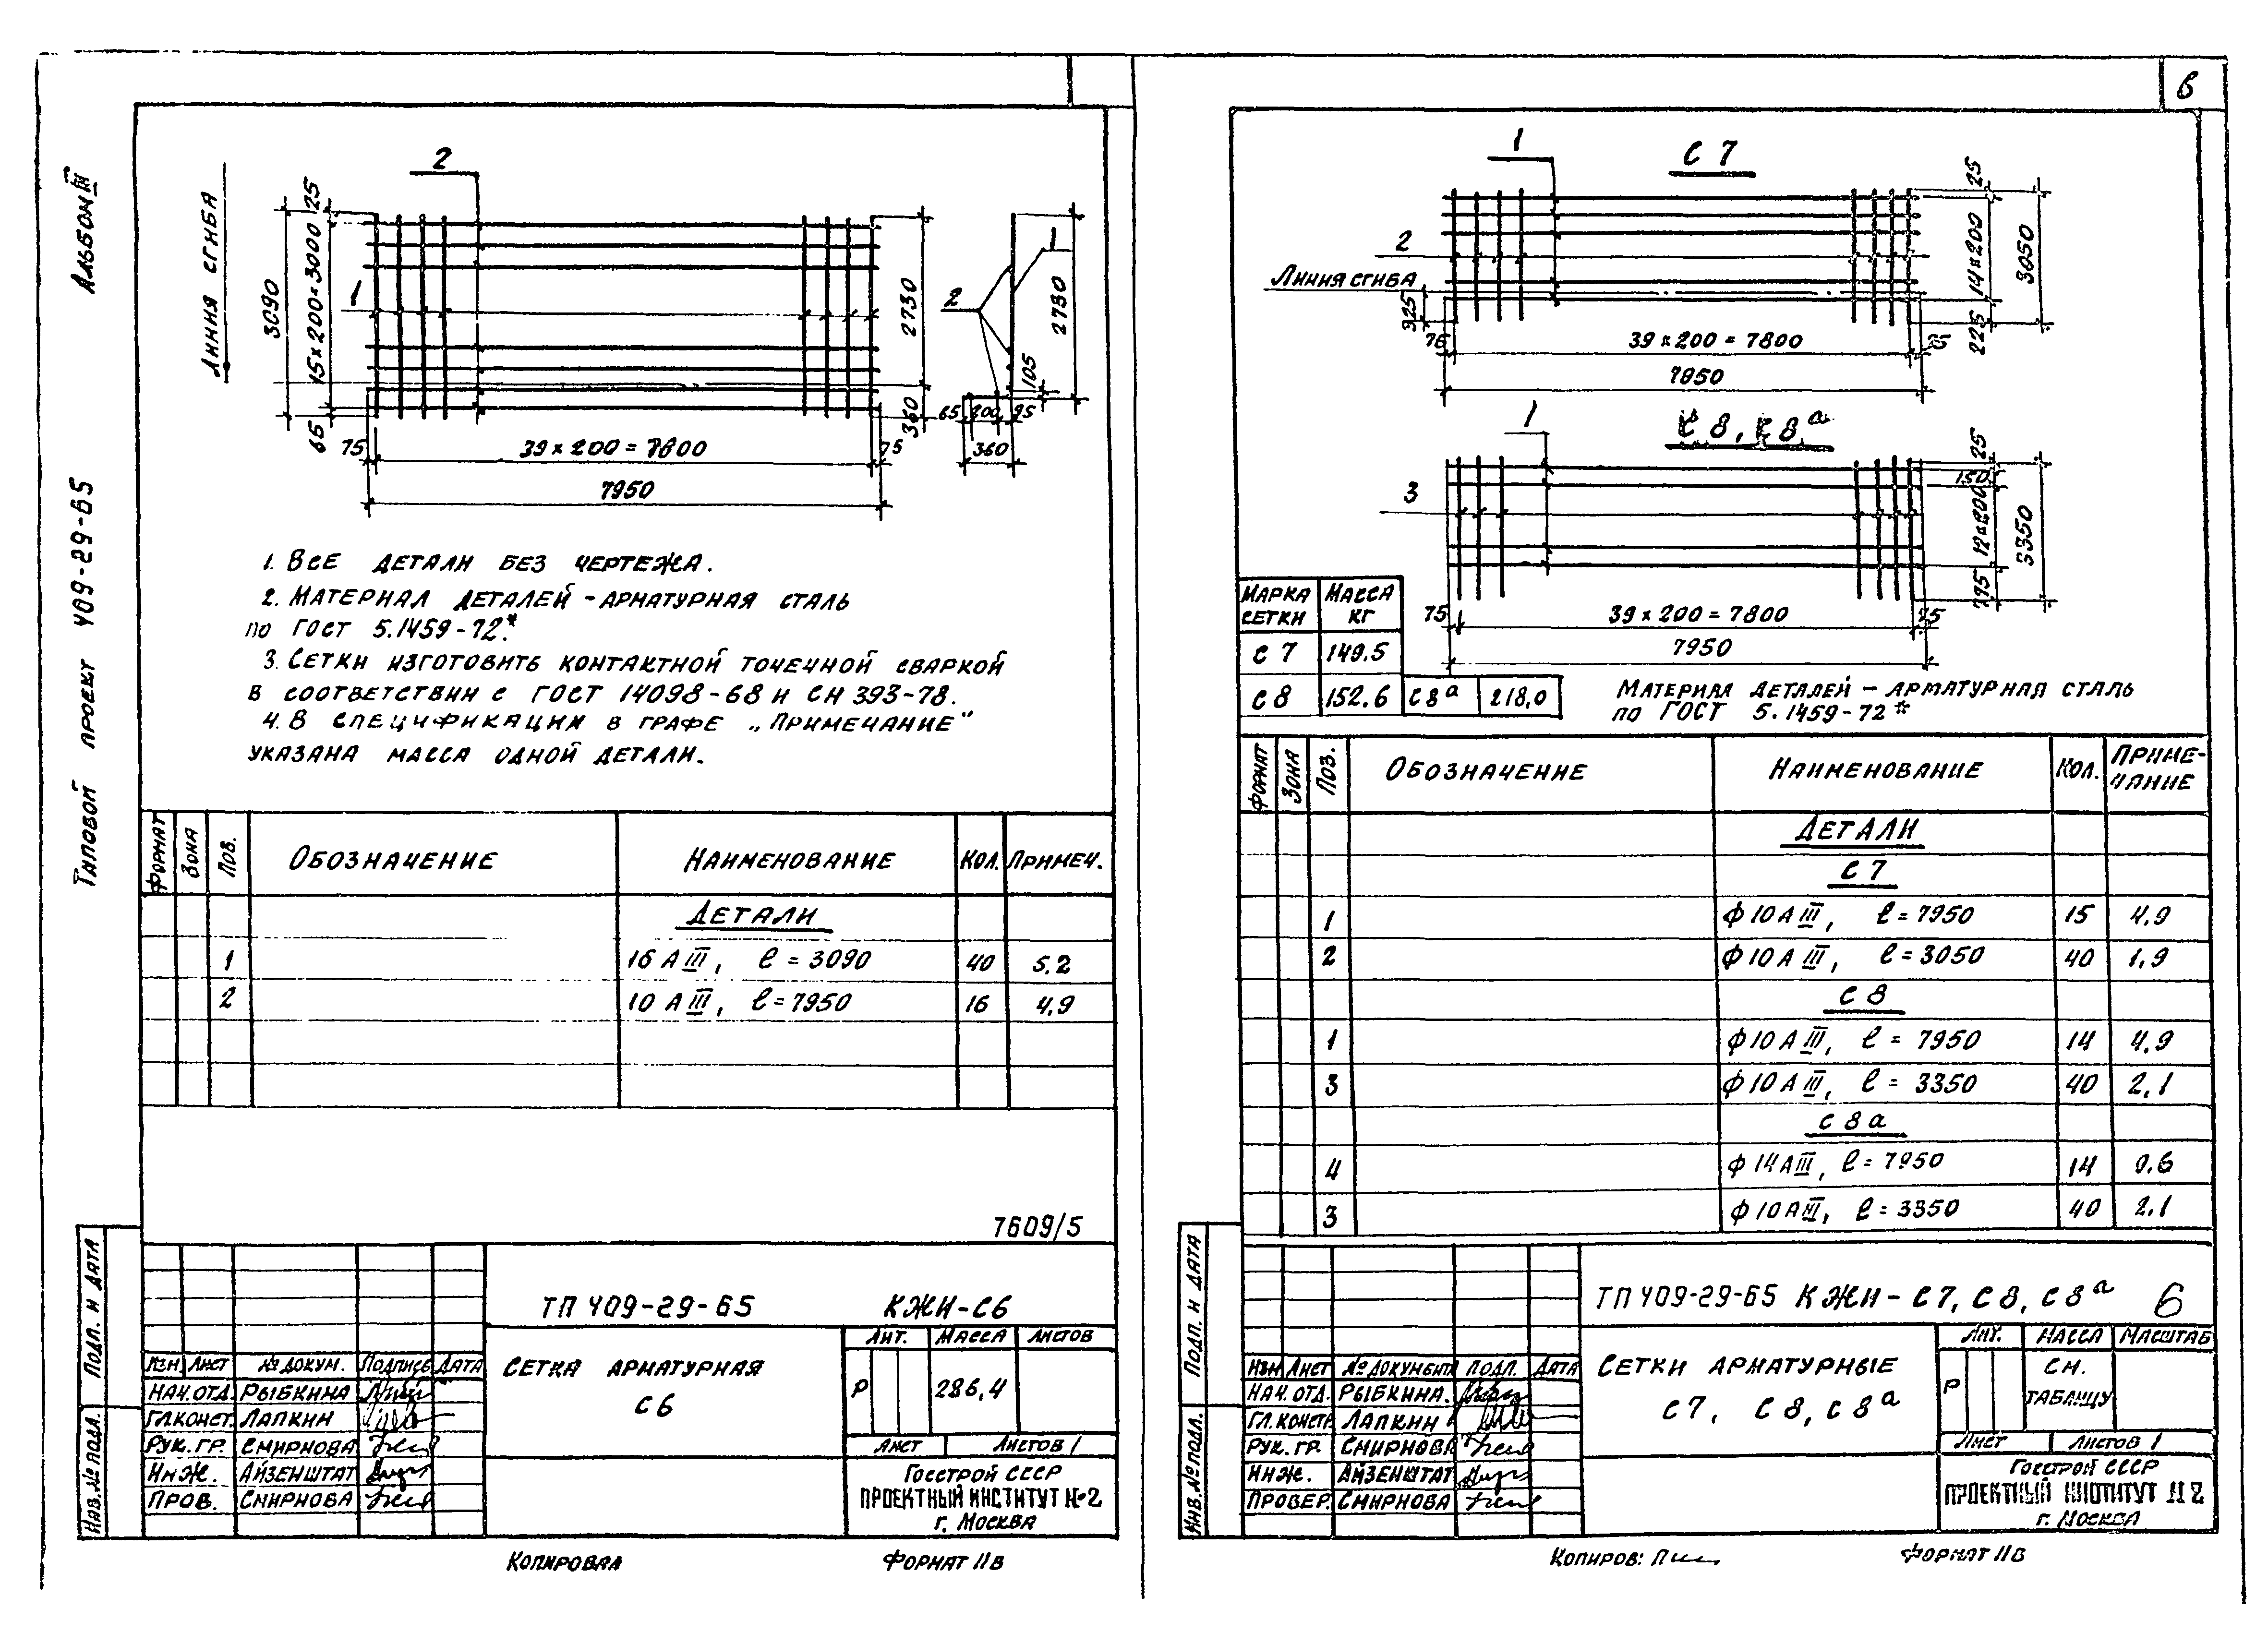 Альбом III
Типовой проект 409-29-65
Линия сгиба
2
1
3090
25
15×200=3000
65
2730
360
75
39×200=7800
75
7950
1
2
2730
105
65
200
95
360
1. Все детали без чертежа.
2. Материал деталей - арматурная сталь
по ГОСТ 5.1459-72.*
3. Сетки изготовить контактной точечной сваркой
в соответствии с ГОСТ 14098-68 и СН 393-78.
4. В спецификации в графе „Примечание“
указана масса одной детали.
Формат Зона Поз. Обозначение Наименование Кол. Примеч.
Детали
1 16 А III, ℓ = 3090 40 5.2
2 10 А III, ℓ = 7950 16 4.9
7609/5
ТП 409-29-65 КЖИ-С6
Сетка арматурная
С6
Лит. Масса Листов
Р 286,4
Лист Листов 1
Госстрой СССР
ПРОЕКТНЫЙ ИНСТИТУТ №2
г. Москва
Изм Лист № докум. Подпись Дата
Нач. отд. Рыбкина
Гл.конст. Лапкин
Рук. гр. Смирнова
Инж. Айзенштат
Пров. Смирнова
Подп. и дата
Инв. № подл.
Копировал Формат 11в
6
С 7
1
2
Линия сгиба
325
75
39×200=7800
75
7950
25
14×200
225
3050
С 8, С 8а
1
3
75
39×200=7800
75
7950
25
150
12×200
775
3350
Марка сетки Масса кг
С 7 149.5
С 8 152.6 С 8а 218,0
Материал деталей - арматурная сталь
по ГОСТ 5.1459-72*
Формат Зона Поз. Обозначение Наименование Кол. Примечание
Детали
С 7
1 ф 10 А III, ℓ = 7950 15 4.9
2 ф 10 А III, ℓ = 3050 40 1.9
С 8
1 ф 10 А III, ℓ = 7950 14 4.9
3 ф 10 А III, ℓ = 3350 40 2.1
С 8а
4 ф 14 А III, ℓ = 7950 14 9.6
3 ф 10 А III, ℓ = 3350 40 2.1
ТП 409-29-65 КЖИ - С 7, С 8, С 8а 6
Сетки арматурные
С 7, С 8, С 8а
Лит. Масса Масштаб
Р См. таблицу
Лист Листов 1
Госстрой СССР
ПРОЕКТНЫЙ ИНСТИТУТ №2
г. Москва
Изм Лист № документа Подп. Дата
Нач. отд. Рыбкина.
Гл. констр. Лапкин
Рук. гр. Смирнова
Инж. Айзенштат
Провер. Смирнова
Подп. и дата
Инв. № подл.
Копиров: Формат 11в